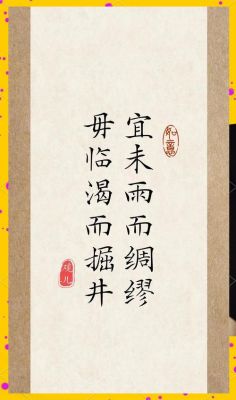 宜未雨而绸缪
毋临渴而掘井
如意